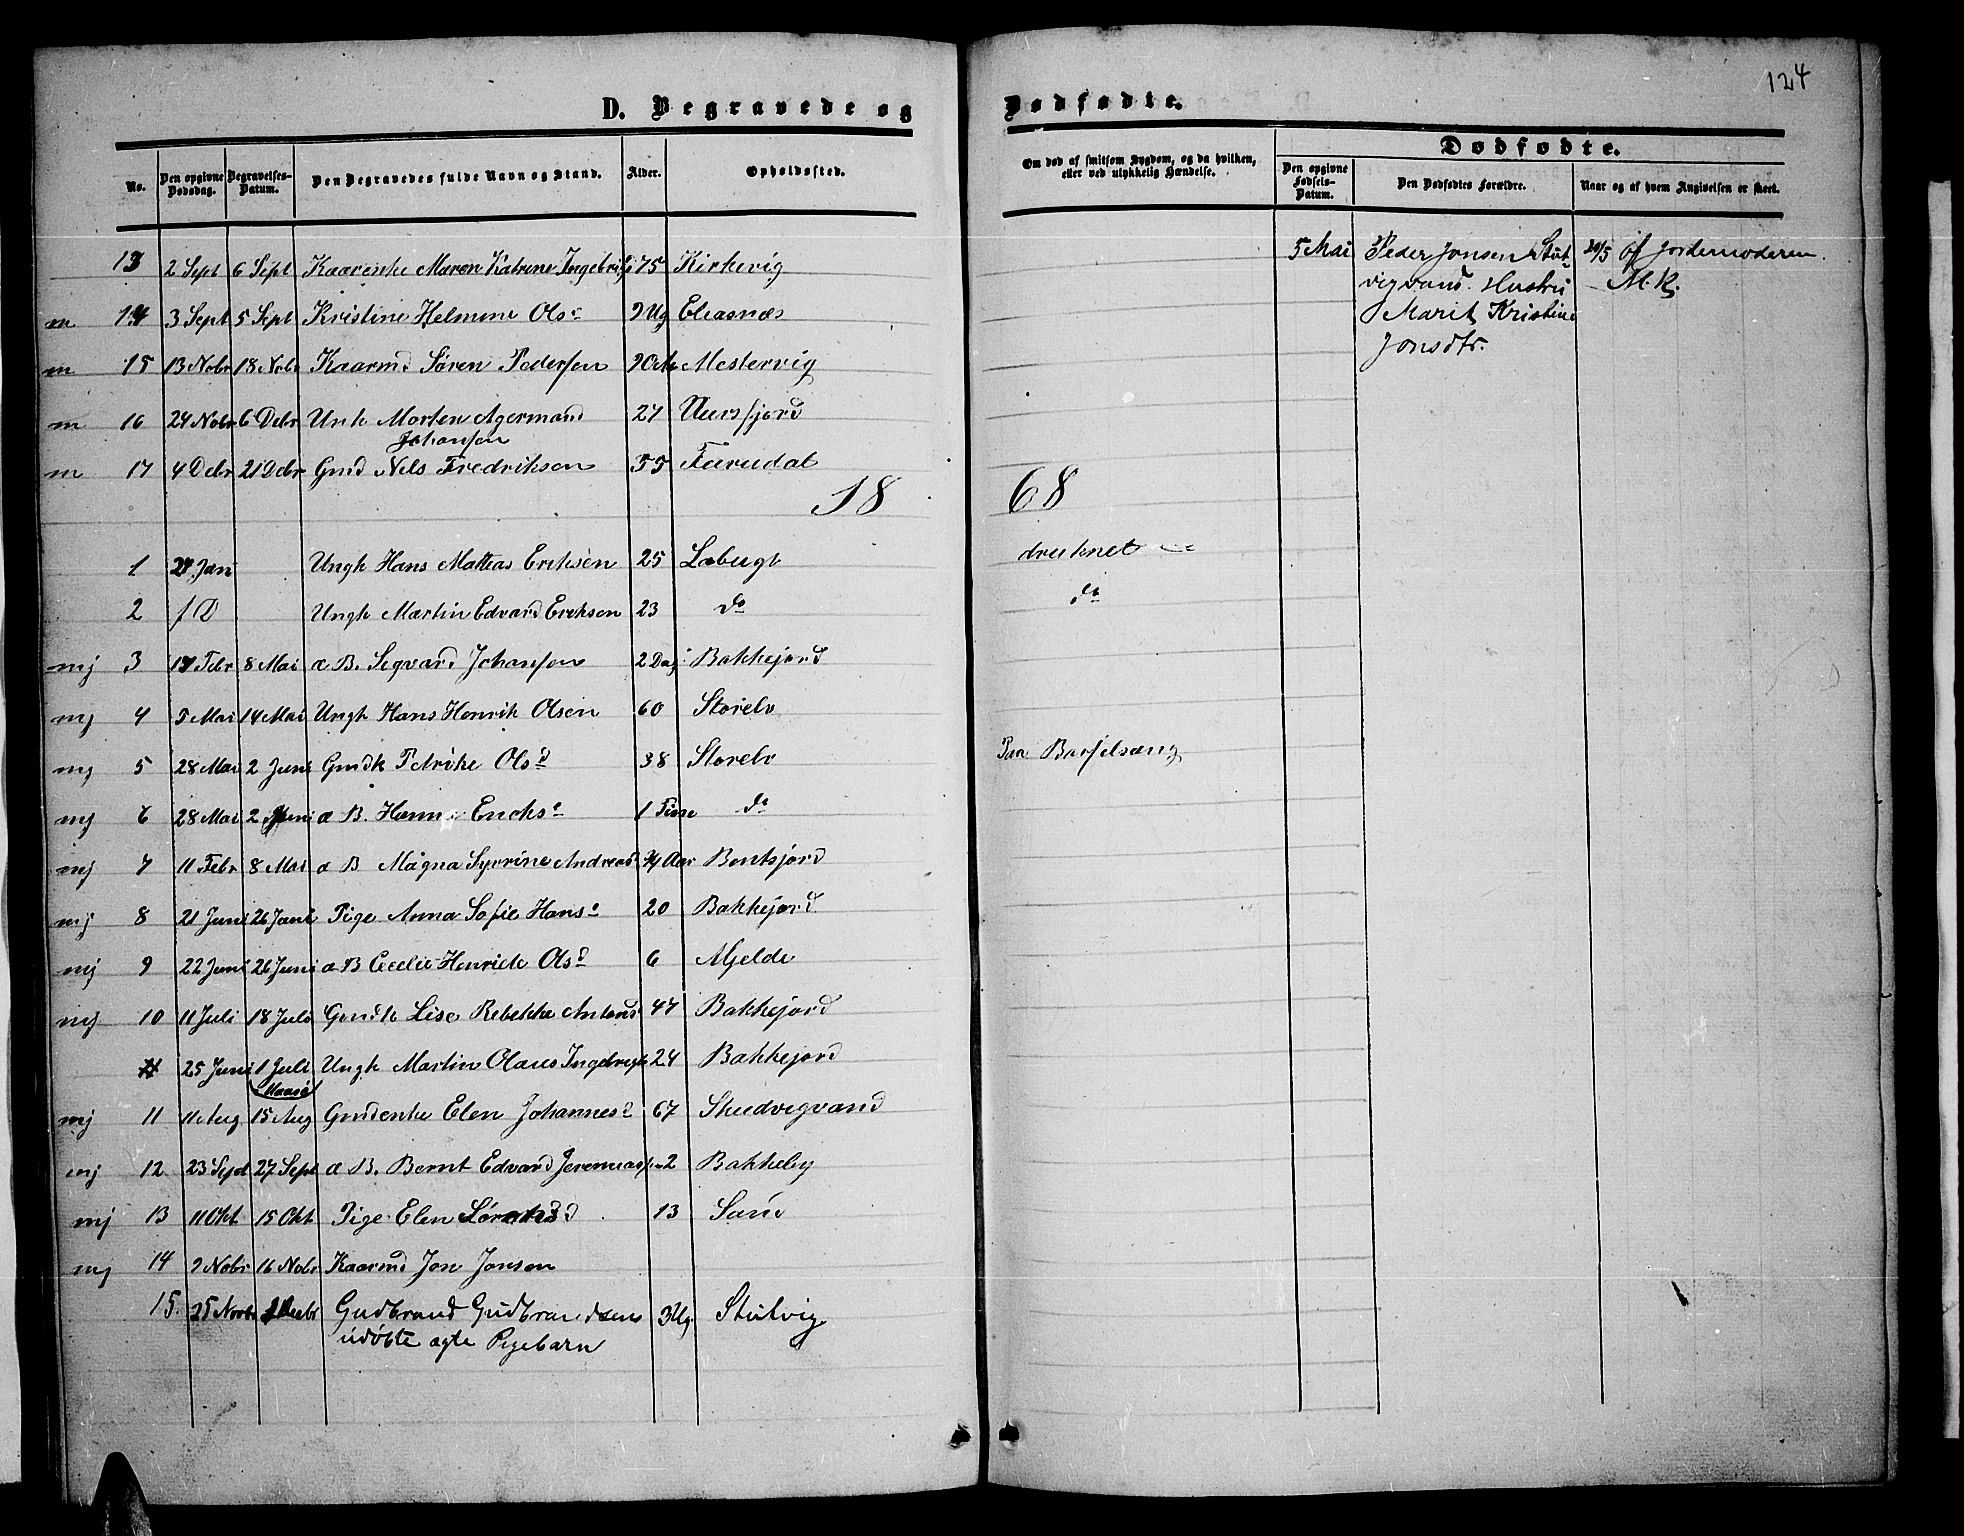 124
D. Begravede og Dødfødte.
No. Den opgivne Dødsdag. Begravelses-Datum. Den Begravedes fulde Navn og Stand. Alder. Opholdssted. Om død af smitsom Sygdom, og da hvilken, eller ved ulykkelig Hændelse. Dødfødte. Den opgivne Fødsels-Datum. Den Dødfødtes Forældre. Naar og af hvem Angivelsen er skeet.
13 2 Sept 6 Sept Kaarenke Maren Katrine 75 Kirkevig 5 Mai Peder Jonsen Stut
vigvand. Hustru
Marit Kristine
Jonsdtr.
af Jordemoderen.
M.K.
m 14 3 Sept 5 Sept Kristine Helmine Ols 9 Ug Eleasnæs
m 15 13 Nobr 18 Nobr Kaarmd Søren Pedersen Mestervig
m 16 24 Nobr 6 Debr Unk Morten Agermand 27
Johansen
m 17 4 Debr 21 Debr Gmd Nils Fredriksen 55 Furudal
18 68
1 27 Jan Ungk Hans Mattias Eriksen 25 Labugt druknet
2 Ungk Martin Edvard Eriksen 23 do do
mj 3 17 Febr 8 Mai æ B. Segvard Johansen 2 Dag Bakkejord
mj 4 5 Mai 14 Mai Ungk Hans Henrik Olsen 60 Storelv
mj 5 28 Mai 2 Juni Gmdk Petrike Olsd 38 Storelv Paa Barselsæng
mj 6 28 Mai 2 Juni æ B. Hanna 1 do
mj 7 11 Febr 8 Mai æ B Magna 3/4 Aar Bentsjord
mj 8 21 Juni 26 Juni Pige Anna Sofie Hans 20 Bakkejord
mj 9 22 Juni 26 Juni æ B Cecelie Henrick Olsd 6 Mjelde
mj 10 11 Juli 18 Juli Gmdk Lise Rebekke Antons 47 Bakkejord
25 Juni 1 Juli Ungk Martin Olaus 24 Bakkejord
Maasø
mj 11 11 Aug 15 Aug Gmdenke Elen Johannesd 67 Studvigvand
mj 12 23 Sept 27 Sept æ B. Bernt Edvard Jeremiass 2 Bakkeby
mj 13 11 Okt 15 Okt Pige Elen 13 Sand
mj 14 9 Nobr 16 Nobr Kaarmd Jon Jonsen
15. 25 Novbr Gudbrand Gudbrandsens 3 Ug. Stutvig
udøbte ægte Pigebarn